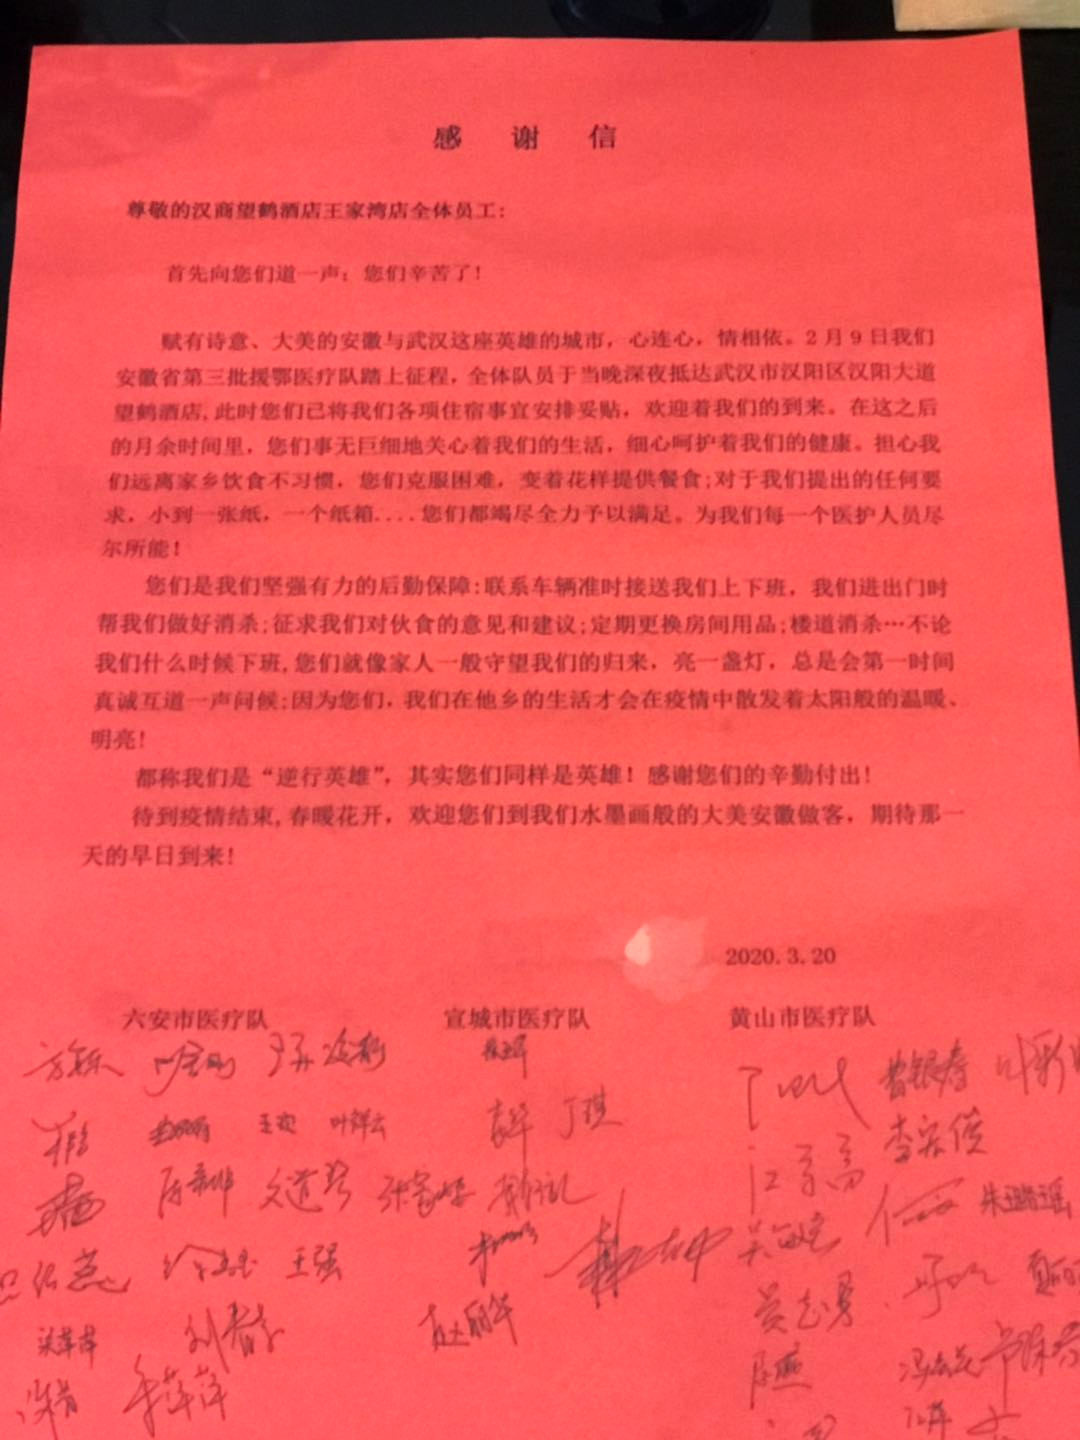 感 谢 信
尊敬的汉商望鹤酒店王家湾店全体员工:
首先向您们道一声：您们辛苦了!
赋有诗意、大美的安徽与武汉这座英雄的城市，心连心，情相依。2 月 9 日我们
安徽省第三批援鄂医疗队踏上征程，全体队员于当晚深夜抵达武汉市汉阳区汉阳大道
望鹤酒店,此时您们已将我们各项住宿事宜安排妥贴，欢迎着我们的到来。在这之后
的月余时间里，您们事无巨细地关心着我们的生活，细心呵护着我们的健康。担心我
们远离家乡饮食不习惯，您们克服困难，变着花样提供餐食;对于我们提出的任何要
求，小到一张纸，一个纸箱....您们都竭尽全力予以满足。为我们每一个医护人员尽
尔所能!
您们是我们坚强有力的后勤保障:联系车辆准时接送我们上下班，我们进出门时
帮我们做好消杀;征求我们对伙食的意见和建议;定期更换房间用品;楼道消杀…不论
我们什么时候下班,您们就像家人一般守望我们的归来，亮一盏灯，总是会第一时间
真诚互道一声问候;因为您们，我们在他乡的生活才会在疫情中散发着太阳般的温暖、
明亮!
都称我们是“逆行英雄”，其实您们同样是英雄！感谢您们的辛勤付出!
待到疫情结束,春暖花开，欢迎您们到我们水墨画般的大美安徽做客，期待那一
天的早日到来!
2020.3.20
六安市医疗队 宣城市医疗队 黄山市医疗队
曾银寿
王欢 叶祥云 丁琪
朱璐瑶
王强
吴志勇